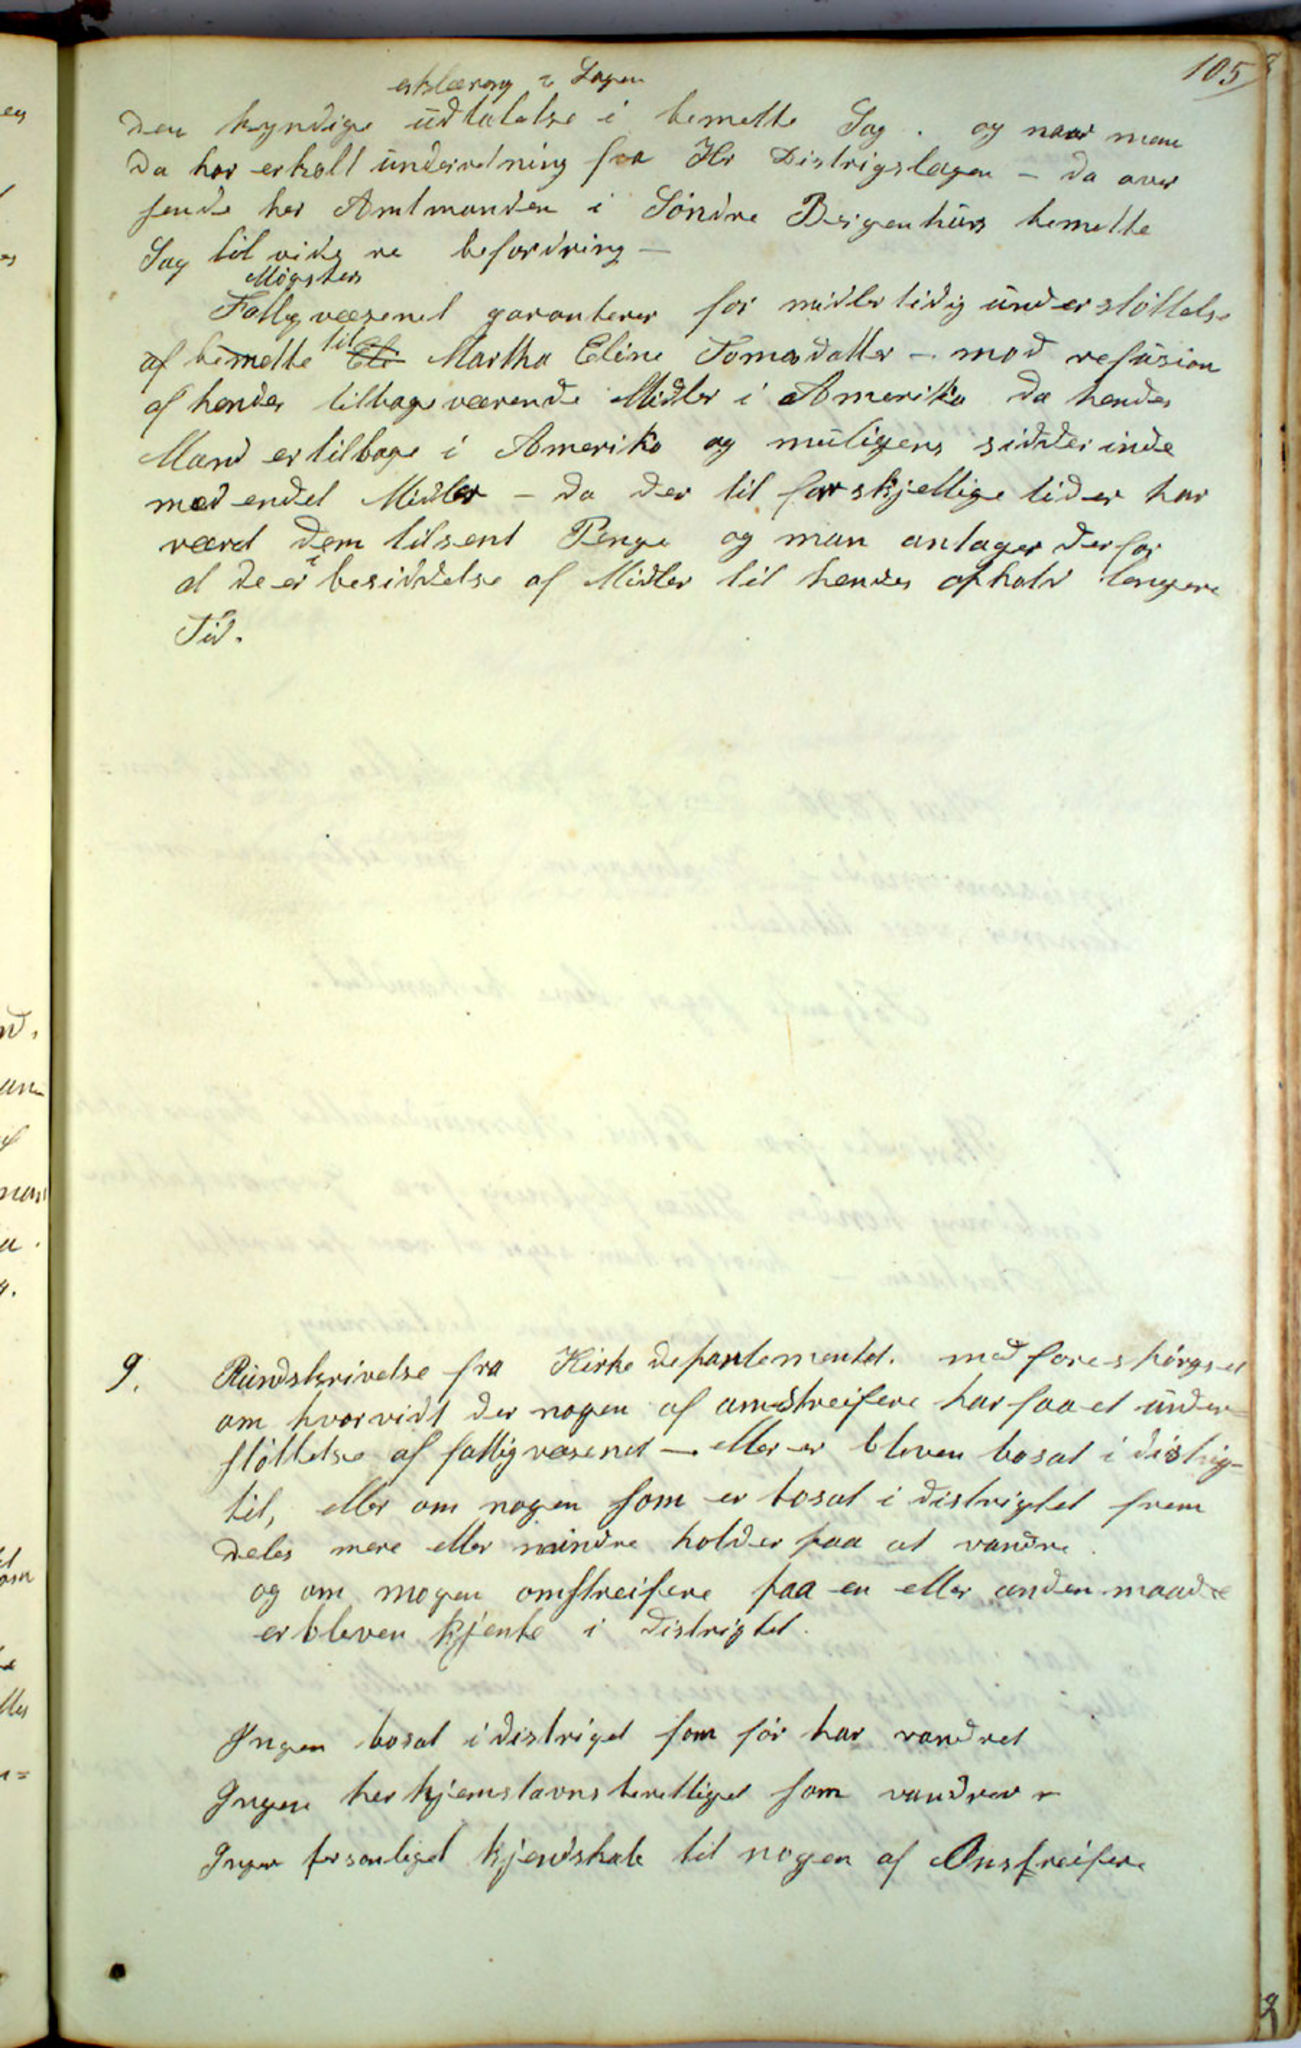 105
erklæring i Sagen
den kyndige üdtalelse i bemelte Sag. og naar man
da har erholt ünderretning fra Hr Distrigslægen – da over
sende her Amtmanden i Söndre Bergenhüs bemelte
Sag til vide re befordring –
Mögsters
Fattigvæsenet garanterer for midlertidig ünderstöttelse
af bemelte til Eli Martha Eline Tomasdatter – mod refüsion
af hendes tilbageværende Midler i Amerika da hendes
Mand er tilbage i Amerika og müligens sidder inde
med endel Midler – da der til forskjellige tider har
værd dem tilsent Penge og man antager derfor
at de er i besiddelse af Midler til hendes ophold længere
Tid.
9. Ründskrivelse fra Kirke departementet. med forespörgsel
om hvorvidt der nogen af omstreifere har faaet ünder=
stöttelse af fattigvæsenet – eller er bleven bosat i distrig-
tet, eller om nogen som er bosat i distrigtet frem
deles mere eller mindre holder paa at vandre.
og om nogen omstreifere paa en eller anden maade
er bleven kjente i distrigtet.
Ingen bosat i distriget som för har vandret
Ingen her hjemstavnsberettiget som vandrer
Ingen personliget kjendskab til nogen af Omstreifere